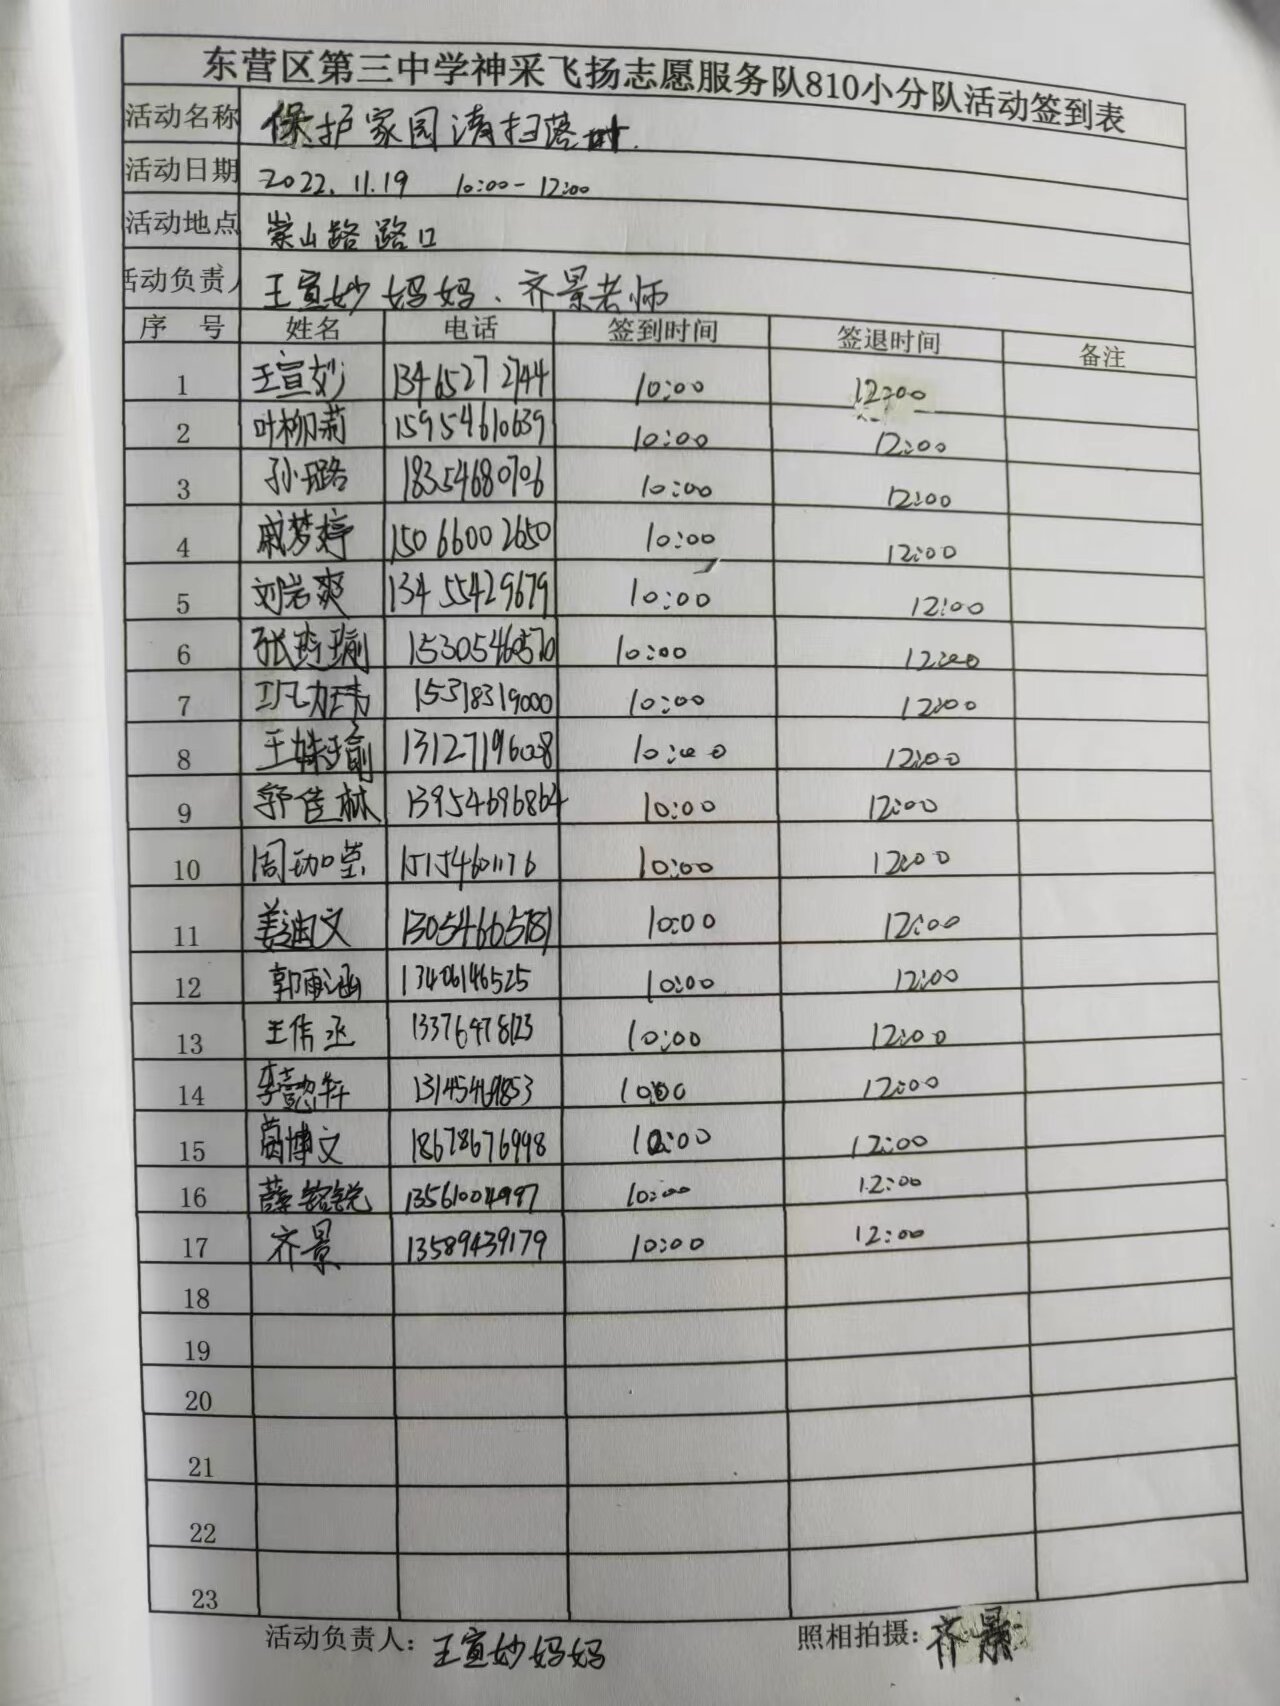 东营区第三中学神采飞扬志愿服务队810小分队活动签到表
活动名称 保护家园清扫落叶.
活动日期 2022.11.19 10:00-12:00
活动地点 崇山路路口
活动负责人 王宣妙妈妈、齐景老师
序号 姓名 电话 签到时间 签退时间 备注
1 王宣妙 13465272744 10:00 12:00
2 叶柳莉 15954610639 10:00 12:00
3 孙璐 18354680706 10:00 12:00
4 戚梦婷 15066002650 10:00 12:00
5 刘岩爽 13455429679 10:00 12:00
6 10:00 12:00
7 15318319000 10:00 12:00
8 10:00 12:00
9 郭佳林 13954696864 10:00 12:00
10 10:00 12:00
11 姜迪文 13054665781 10:00 12:00
12 郭雨涵 13406146525 10:00 12:00
13 王伟丞 13376478123 10:00 12:00
14 10:00 12:00
15 博文 18678676998 10:00 12:00
16 薛铭锐 13561004997 10:00 12:00
17 齐景 13589439179 10:00 12:00
18
19
20
21
22
23
活动负责人：王宣妙妈妈 照相拍摄：齐景